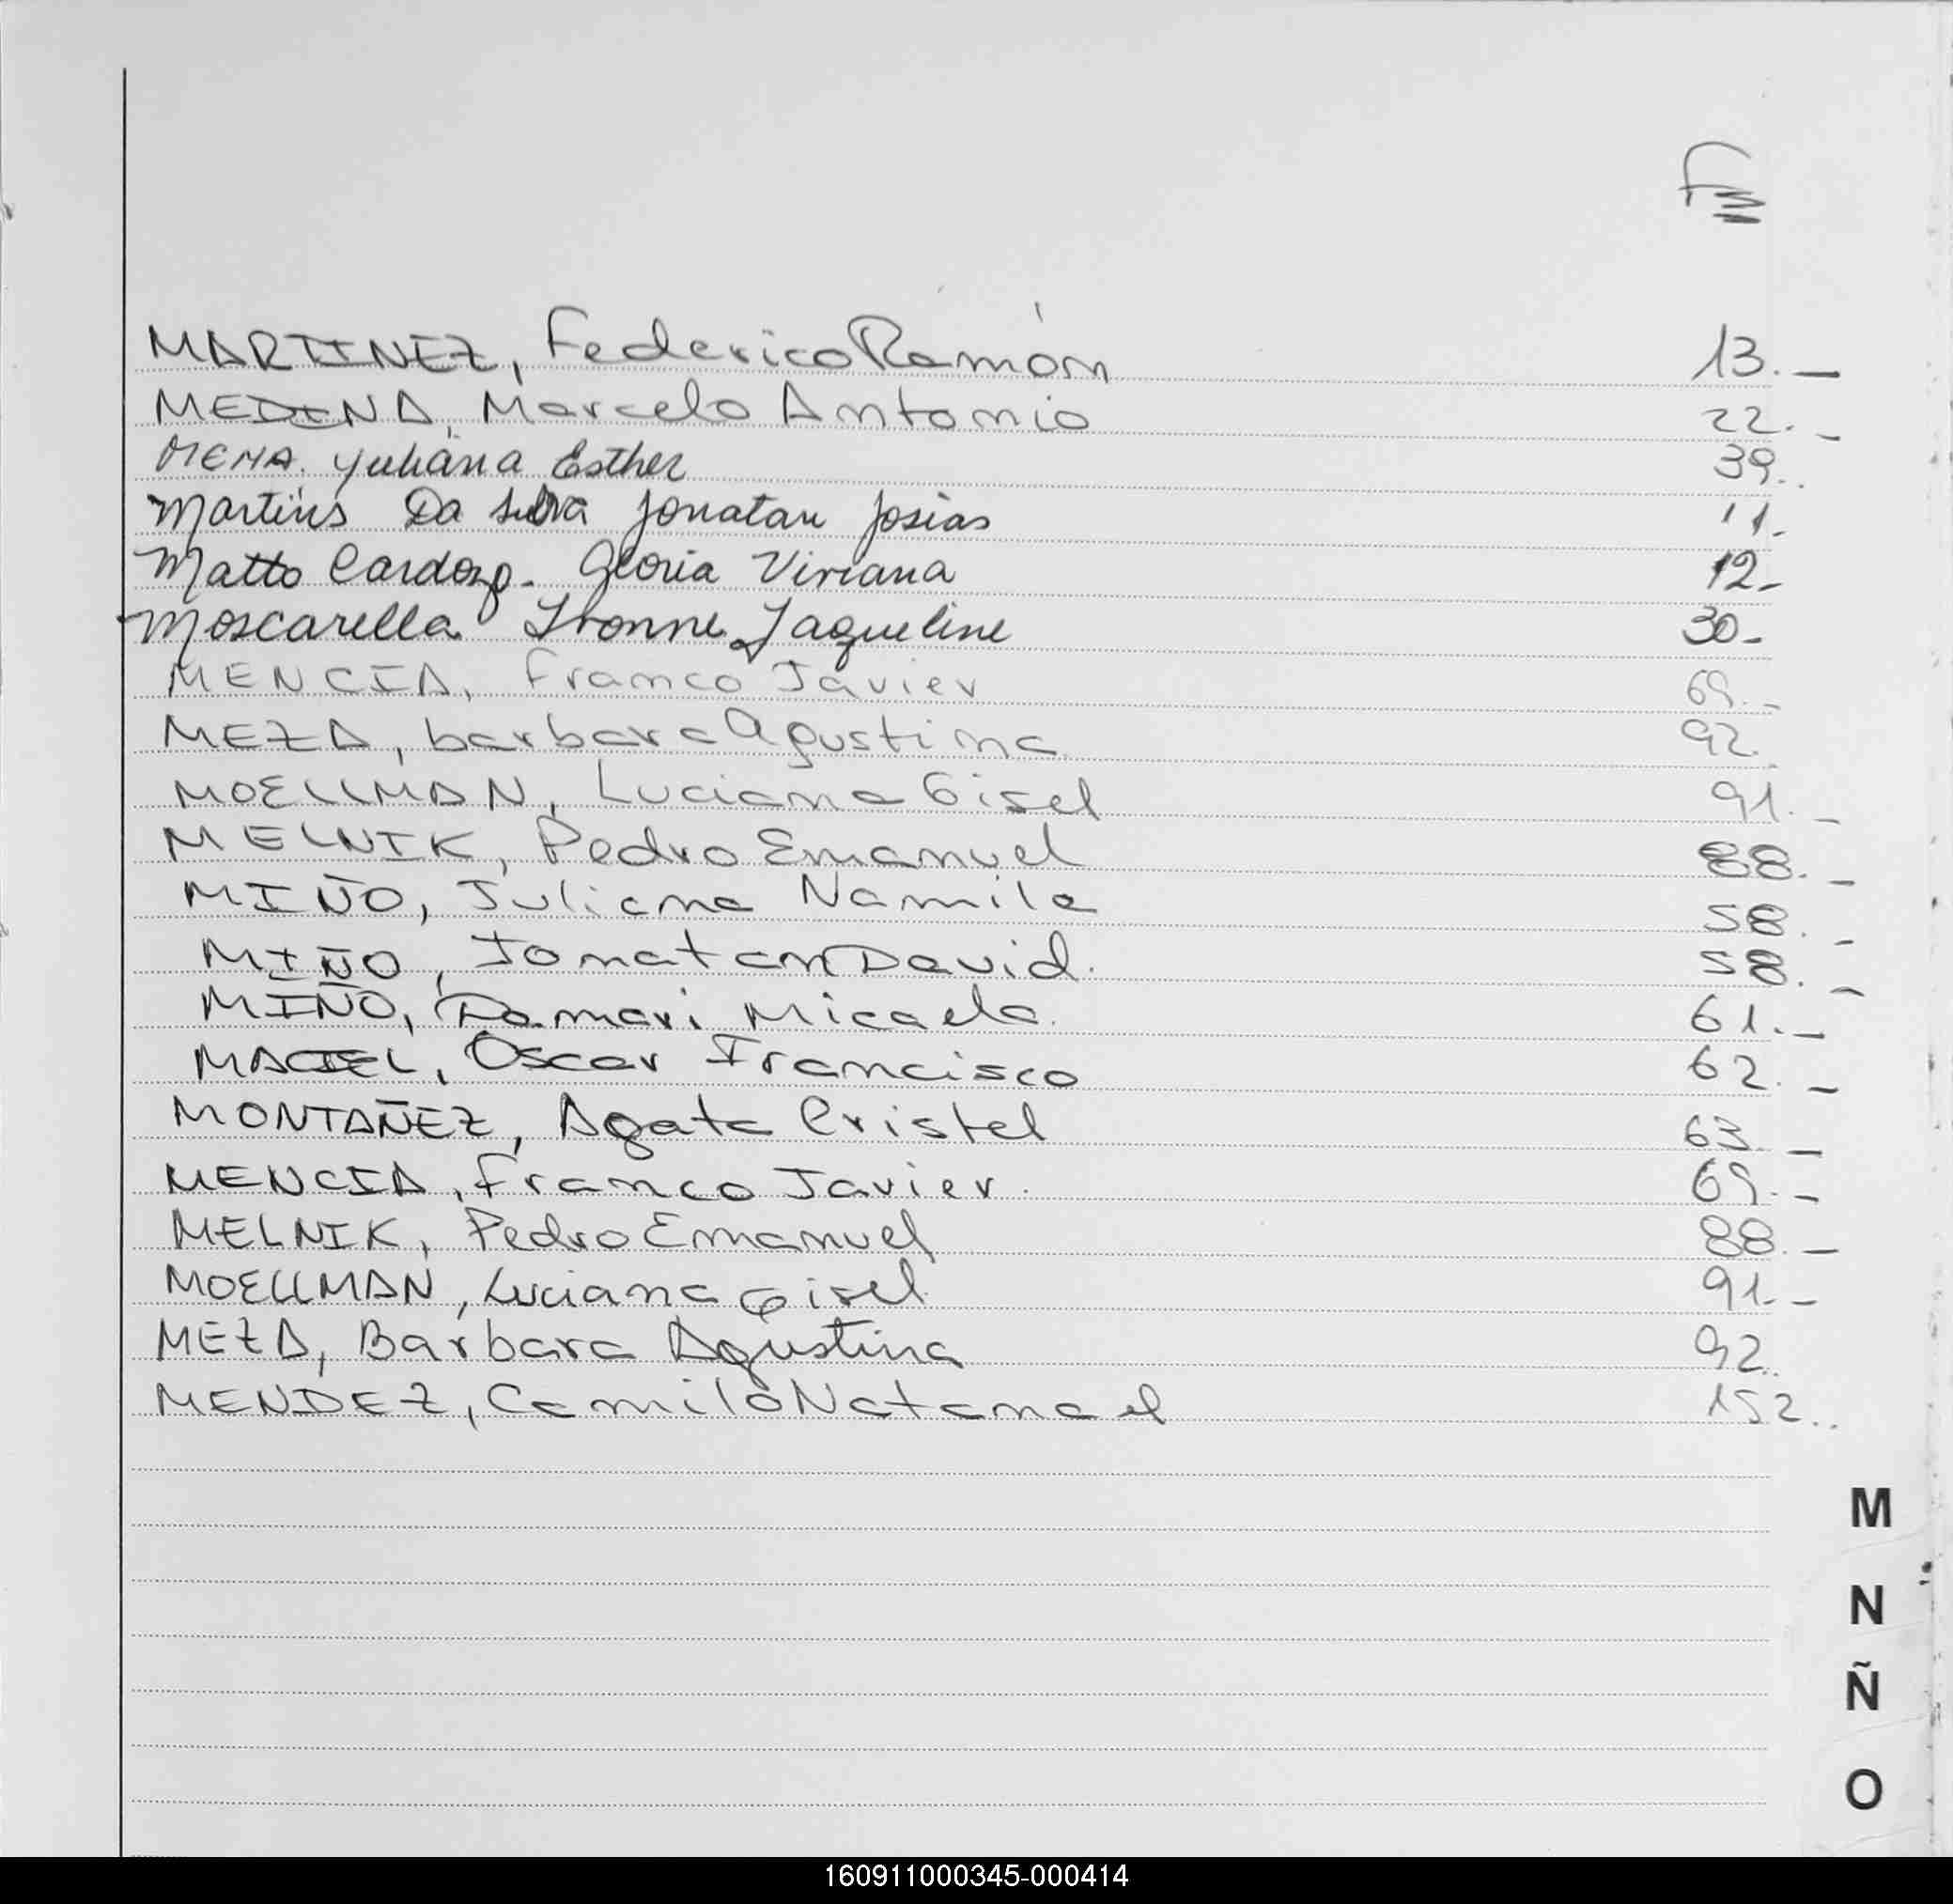 F
MARTINEZ, Federico Ramón 13.—
MEDINA, Marcelo Antonio 22.—
MENA. Yuliana Esther 39..
Martins Da Silva Jonatan Josias 11.-
Matto Cardozo. Gloria Viviana 12-
Moscarella Ivonne Jaqueline 30-
MENCIA, Franco Javier 69.-
MEZA, barbara Agustina 92.
MOELLMAN, Luciana Gisel 91.—
MELNIK, Pedro Emanuel 88.—
MIÑO, Juliana Namila 58.-
MIÑO, Jonatan David. 58.—
MIÑO, Damari Micaela. 61.—
MACIEL, Oscar Francisco 62.—
MONTAÑEZ, Agata Cristel 63.—
MENCIA, Franco Javier. 69.-
MELNIK, Pedro Emanuel 88.—
MOELLMAN, Luciana Gisel 91.-
MEZA, Barbara Agustina 92..
MENDEZ, Camilo Natanael 152..
M
N
Ñ
O
160911000345-000414